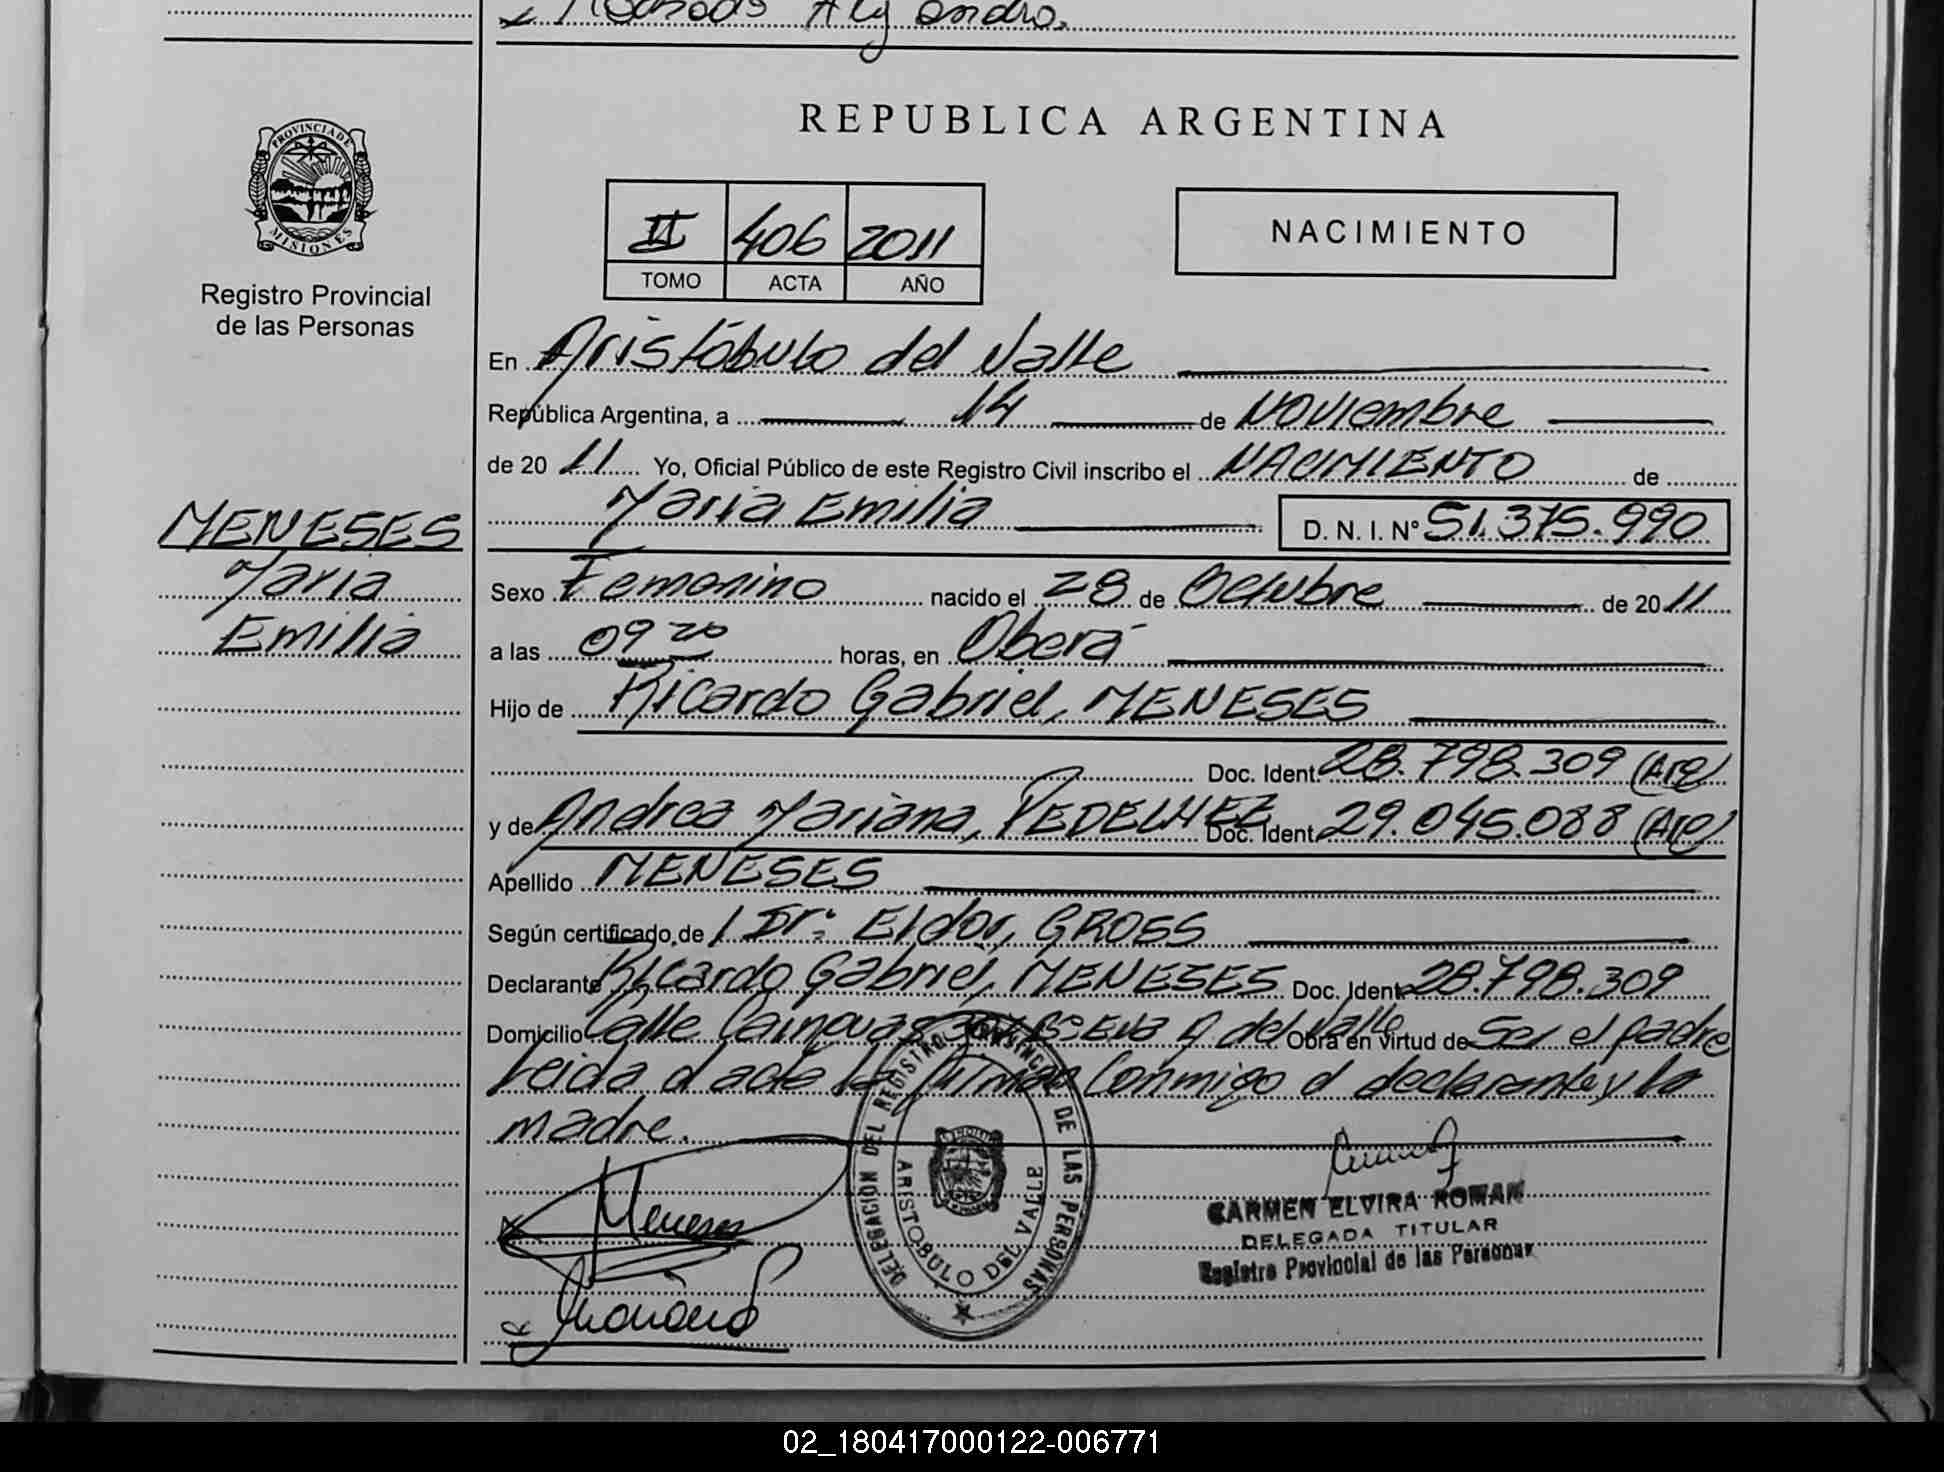 Alejandro.
REPUBLICA ARGENTINA
PROVINCIA DE MISIONES
Registro Provincial
de las Personas
II 406 2011
TOMO ACTA AÑO
NACIMIENTO
En Aristóbulo del Valle
República Argentina, a 14 de Noviembre
de 20 11 Yo, Oficial Público de este Registro Civil inscribo el NACIMIENTO de
Maria Emilia D. N. I. N° 51.375.990
MENESES
Maria
Emilia
Sexo Femenino nacido el 28 de Octubre de 20 11
a las 09 20 horas, en Oberá
Hijo de Ricardo Gabriel, MENESES
Doc. Ident. 28.798.309 (Arg)
y de Andrea Mariana, Doc. Ident. 29.045.088 (Arg)
Apellido MENESES
Según certificado de l Dr: Eldor, GROSS
Declarante Ricardo Gabriel, MENESES Doc. Ident. 28.798.309
Domicilio Calle A del Valle Obra en virtud de Ser el padre
Leida el acta la firman Conmigo el declarante y la
madre.
Meneses
DELEGACIÓN DEL REGISTRO PROVINCIAL DE LAS PERSONAS
ARISTOBULO DEL VALLE
CARMEN ELVIRA ROMAN
DELEGADA TITULAR
Registro Provincial de las Personas
02_180417000122-006771